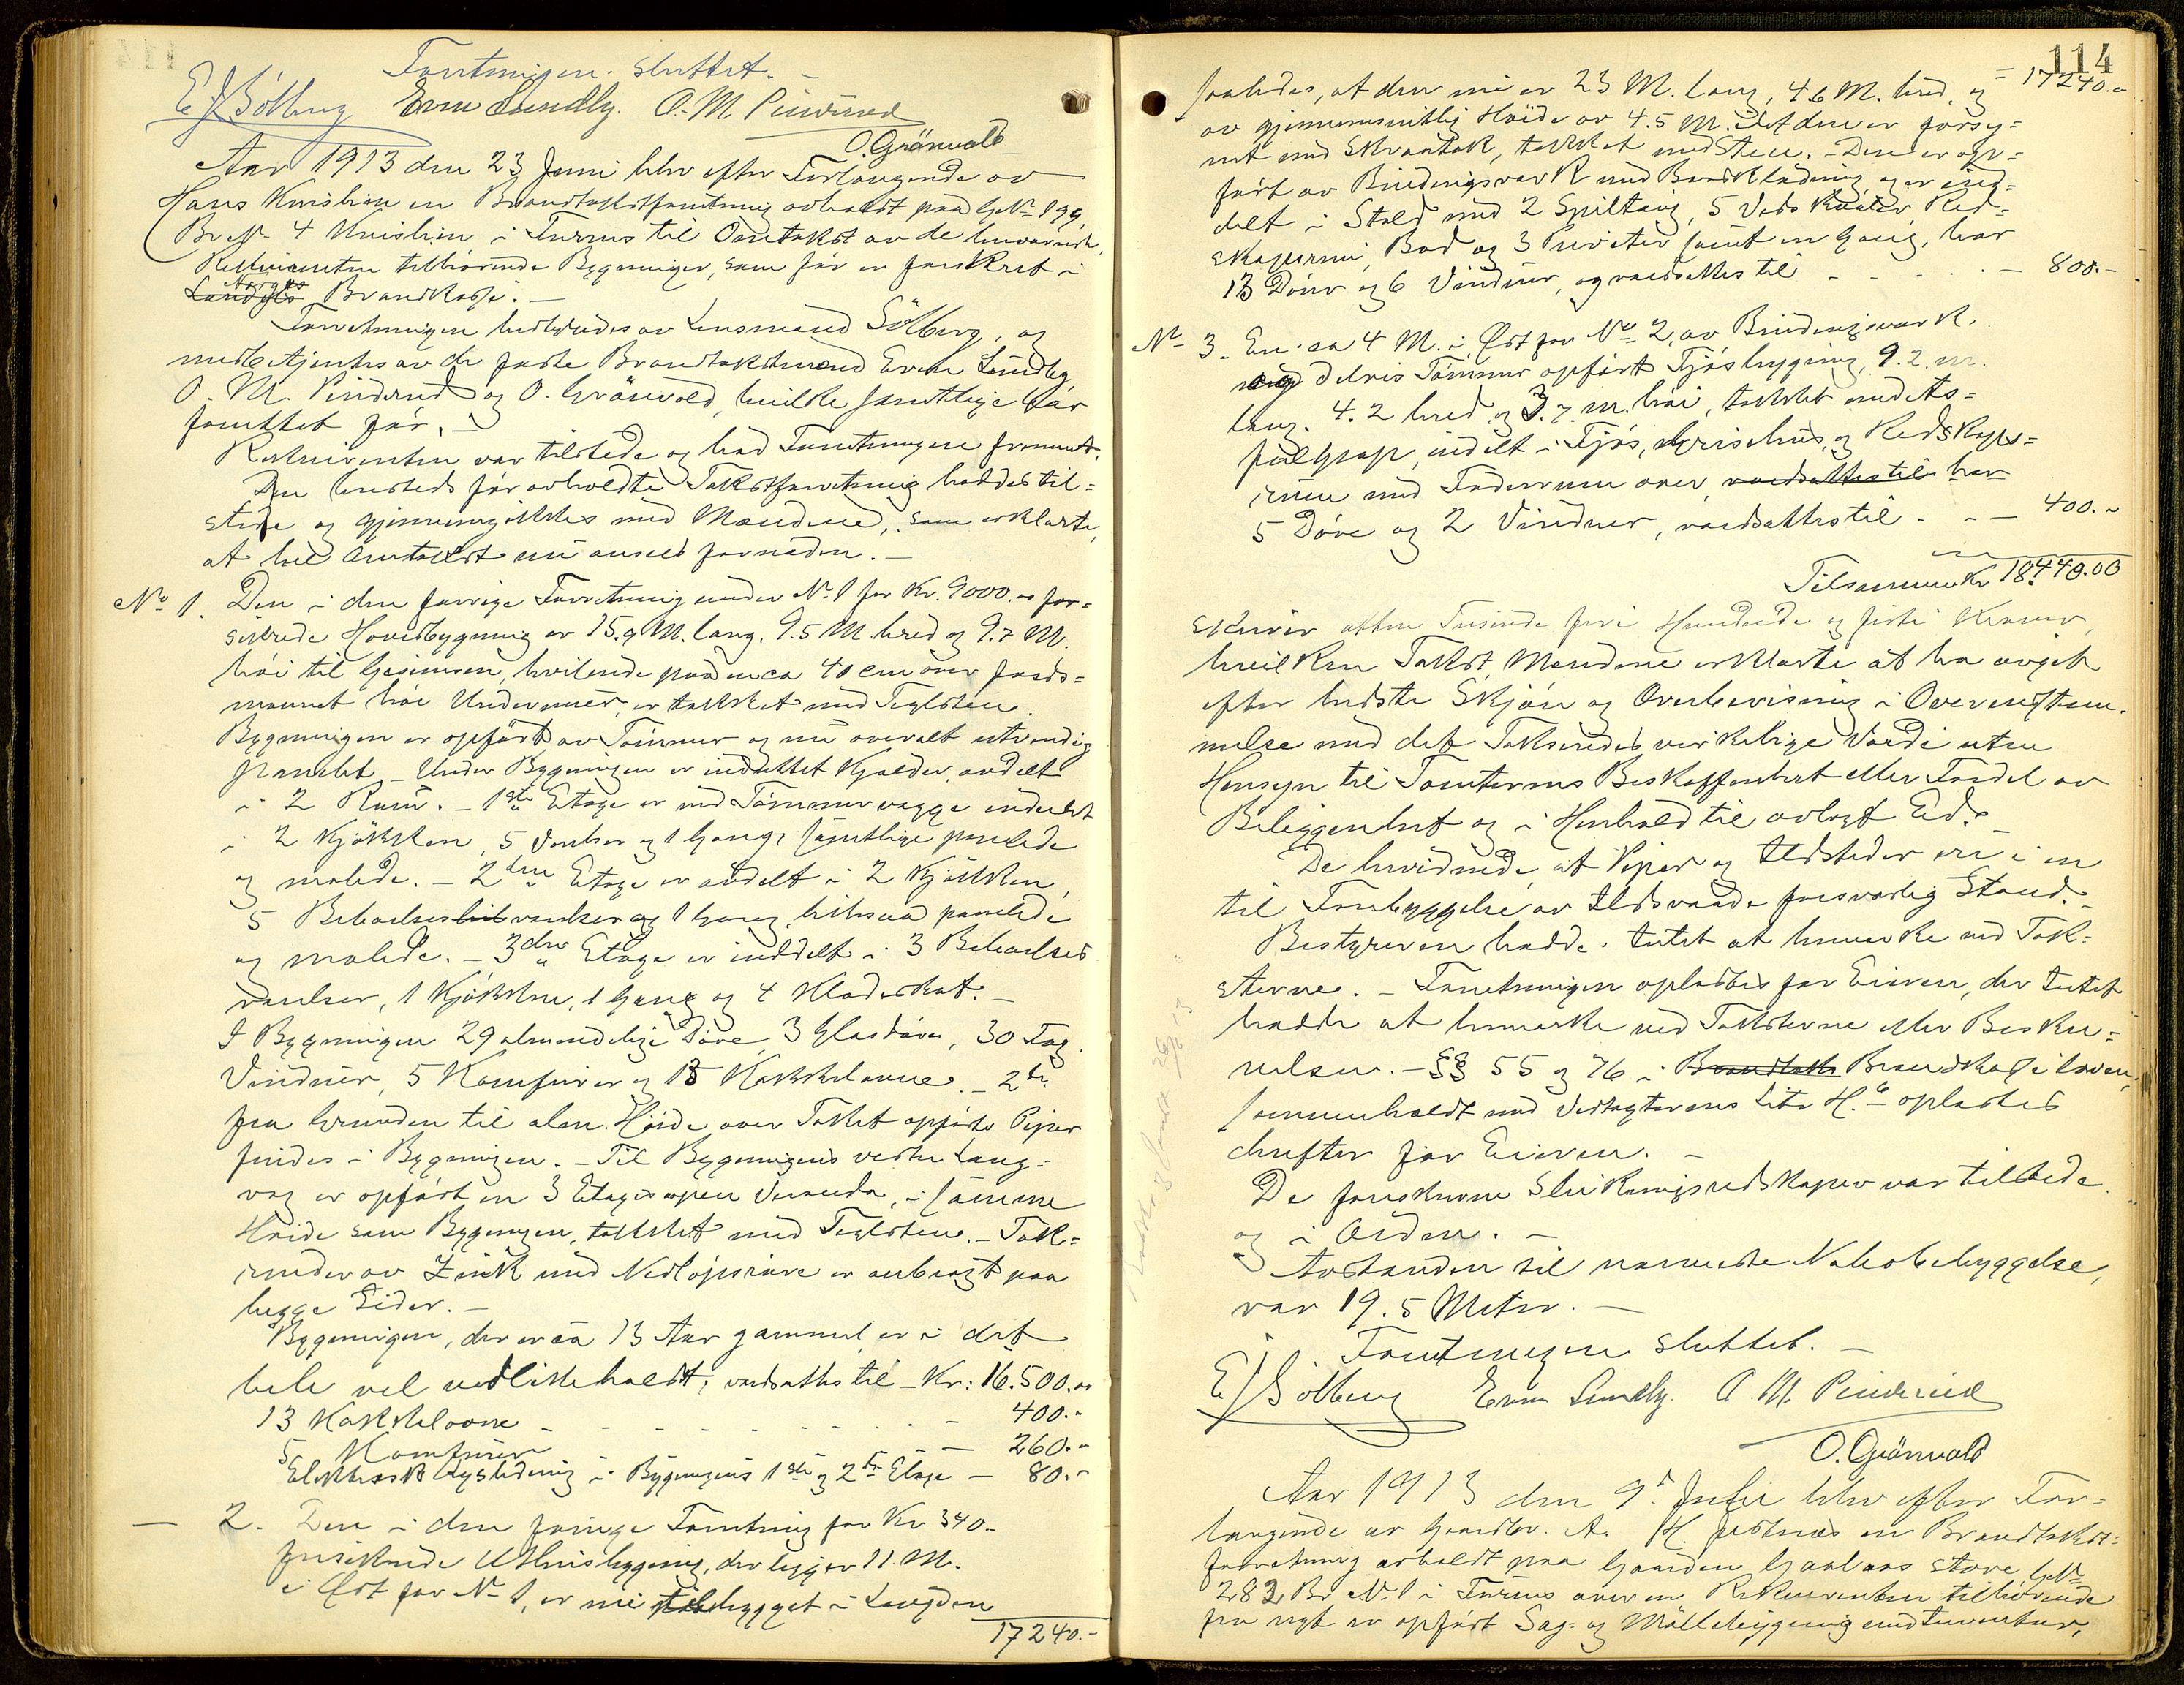 Forretningen sluttet. –
E J Sölberg Even Sundby. O. M. Pinderud
O. Grönvold
Aar 1913 den 23 Juni blev efter Forlangende av
Hans Krislien en Brandtakstforretning avholdt paa G. No 199,
Br. No 4 Krislien i Furnes til Omtakst av de herværende,
Rekvirenten tilhørende Bygninger, som før er forsikret i
Norges
Landets Brandkasse. –
Forretningen bestyredes av Lensmand Sölberg, og
medbetjentes av de faste Brandtakstmænd Even Sundby,
O. M. Pinderud og O. Grönvold, hvilke samtlige har
forrettet før. –
Rekvirenten var tilstede og bad Forretningen fremmet.
Den hersteds før avholdte Takstforretning haddes til=
stede og gjennemgikkes med Mændene, som erklærte,
at hel Omtakst nu ansees fornøden. –
No 1. Den i den forrige Forretning under No 1 for Kr. 9000.00 for=
sikrede Hovedbygning er 15.9 M. lang, 9.5 M. bred og 9.7 M.
høi til Gesimsen, hvilende paa en ca 40 cm over Jords=
monnet høi Undermur, er tækket med Teglsten.
Bygningen er opført av Tømmer og nu overalt utvendig
panelet. – Under Bygningen er indrettet Kjælder, avdelt
i 2 Rum. – 1ste Etage er ved Tømmervægge inddelt
i 2 Kjøkken, 5 Værelser og 1 Gang, samtlige panelede
og malede. – 2den Etage er avdelt i 2 Kjøkken,
5 Beboelsesværelser og 1 Gang, likesaa panelede
og malede. – 3die Etage er inddelt i 3 Beboelses
værelser, 1 Kjøkken, 1 Gang og 4 Klædeskot. –
I Bygningen 29 almindelige Døre, 3 Glasdøre, 30 Fag
Vinduer, 5 Komfurer og 13 Kakkelovne. – 2de
fra Grunden til alm. Høide over Taket opførte Piper
findes i Bygningen. – Til Bygningens vestre Lang=
væg er opført en 3 Etages aapen Veranda, i samme
Høide som Bygningen, tækket med Teglsten. – Tak=
render av Zink med Nedløpsrør er anbragt paa
begge Sider. –
Bygningen, der er ca 13 Aar gammel, er i det
hele vel vedlikeholdt, værdsættes til – Kr: 16.500.00
13 Kakkelovne – – – – – 400.-
5 Komfurer – 260.-
Elektrisk Lysledning i Bygningens 1ste og 2den Etage – 80.-
– 2. Den i den forrige Forretning for Kr 340.-
forsikrede Uthusbygning, der ligger 11 M.
i Øst for No 1, er nu tilbygget i Længden
17240.-
114
saaledes, at den nu er 23 M. lang, 4.6 M. bred, og = 17240.-
av gjennemsnitlig Høide av 4.5 M. idet den er forsy=
net med Skraatak, tækket med Sten. – Den er op=
ført av Bindingsværk med Bordklædning og er ind=
delt i Stald med 2 Spiltaug, 5 Vedskuler, Red=
skapsrum, Bod og 3 Priveter samt en Gang, har
13 Døre og 6 Vinduer, og værdsættes til – – – 800.-
No 3. En ca 4 M. i Øst for No 2, av Bindingsværk
og delvis Tømmer opført Fjøsbygning, 9.2 m.
lang, 4.2 bred og 3.7 m. høi, tækket med As=
faltpap, inddelt i Fjøs, Grisehus, og Redskaps=
rum med Foderrum over, værdsættes til har
5 Døre og 2 Vinduer, værdsættes til – – 400.-
Tilsammen Kr 18.440.00
skriver atten Tusinde fire Hundrede og firti Kroner,
hvilken Takst, Mændene erklærte at ha avgit
efter bedste Skjøn og Overbevisning i Overensstem=
melse med det Takseredes virkelige Værdi uten
Hensyn til Tomternes Beskaffenhet eller Fordel av
Beliggenhet og i Henhold til avlagt Ed. –
De bevidnede, at Piper og Ildsteder er i en
til Forebyggelse av Ildsvaade forsvarlig Stand. –
Bestyreren hadde intet at bemærke ved Tak=
sterne. – Forretningen oplæstes for Eieren, der Intet
hadde at bemærke ved Taksterne eller Beskri=
velsen. – §§ 55 og 76 i Brandtaks Brandkasseloven,
sammenholdt med Vedtægternes Litr H. 6 oplæstes
derefter for Eieren. –
De foreskrevne Slukningsredskaper var tilstede
og i Orden. –
Avstanden til nærmeste Nabobebyggelse,
var 19.5 Meter. –
Forretningen sluttet. –
E J Sölberg Even Sundby. O. M. Pinderud
O. Grönvold
Aar 1913 den 9. Juli blev efter For=
langende av Gaardbr. A. H. en Brandtakst=
forretning avholdt paa Gaarden Gaalaas store, G. No
283 Br No 1 i Furnes over en, Rekvirenten tilhørende
fra nyt av opført Sag- og Møllebygning med Inventar,